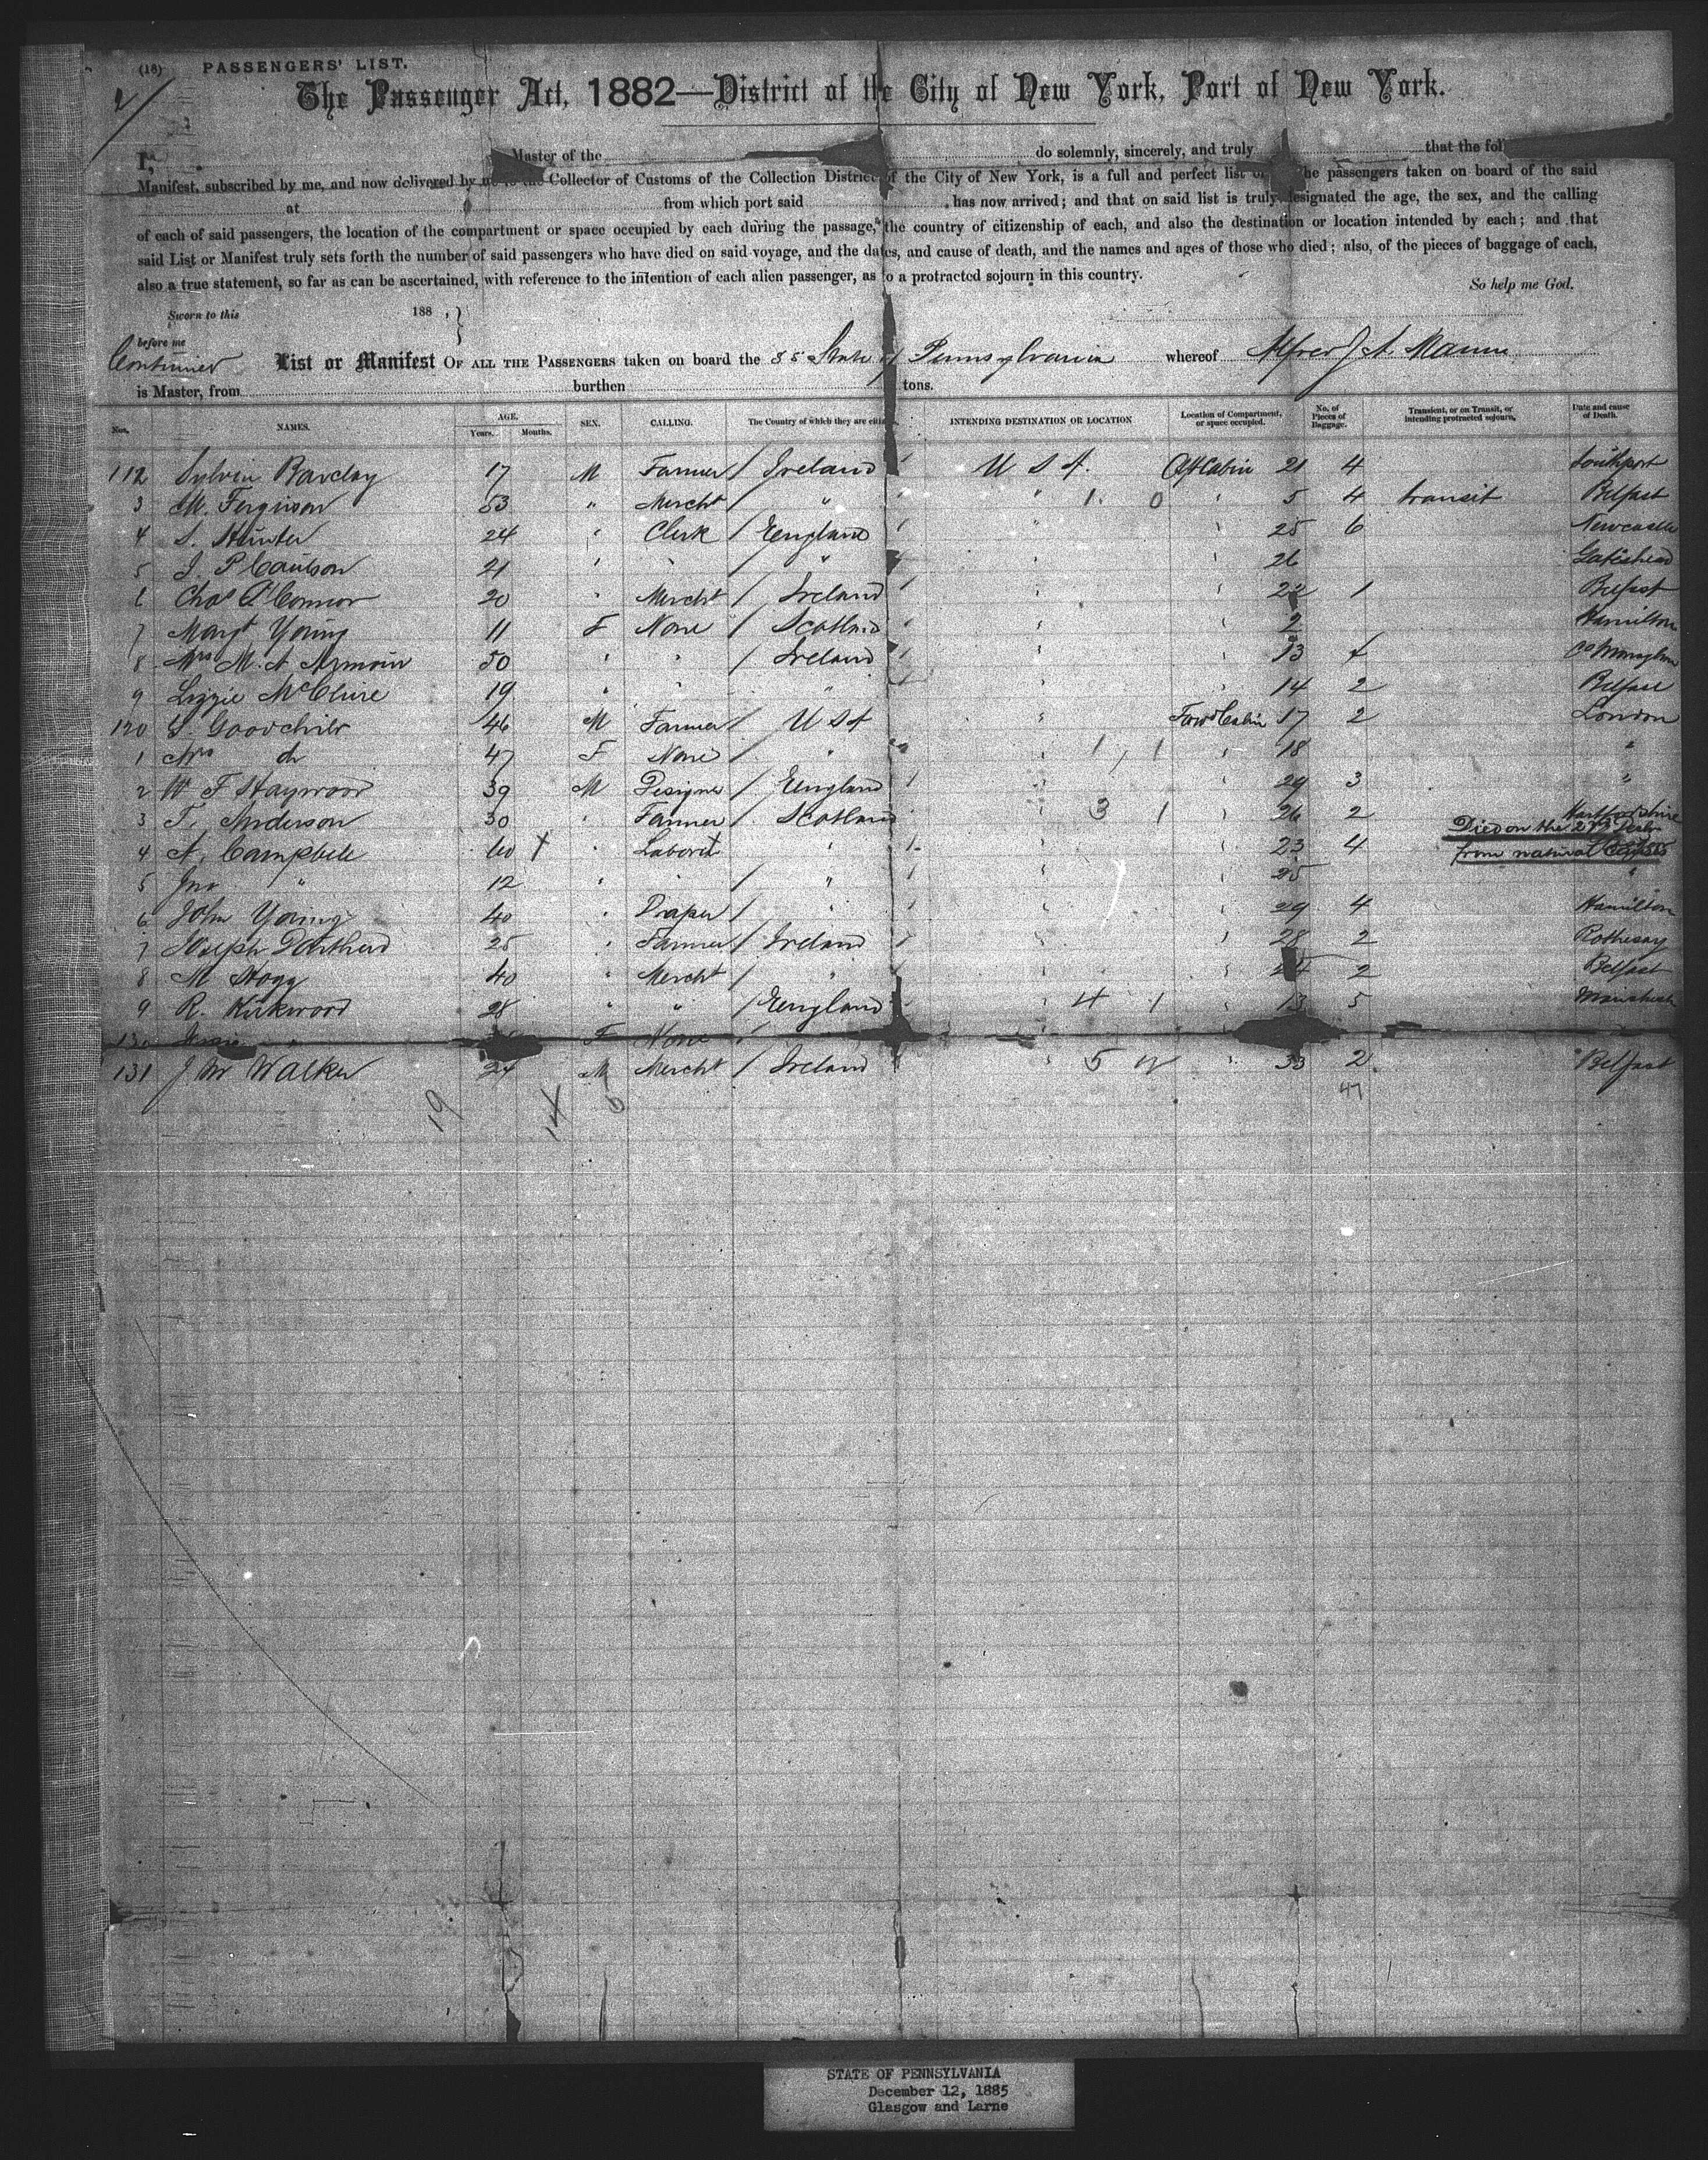 (18) PASSENGERS' LIST.
2/
The Passenger Act, 1882—District of the City of New York, Port of New York.
I, Master of the do solemnly, sincerely, and truly that the fol
Manifest, subscribed by me, and now delivered by me to the Collector of Customs of the Collection District of the City of New York, is a full and perfect list of the passengers taken on board of the said
at from which port said has now arrived; and that on said list is truly designated the age, the sex, and the calling
of each of said passengers, the location of the compartment or space occupied by each during the passage, the country of citizenship of each, and also the destination or location intended by each; and that
said List or Manifest truly sets forth the number of said passengers who have died on said voyage, and the dates, and cause of death, and the names and ages of those who died; also, of the pieces of baggage of each,
also a true statement, so far as can be ascertained, with reference to the intention of each alien passenger, as to a protracted sojourn in this country.
So help me God.
Sworn to this 188 , }
before me
Continued List or Manifest OF ALL THE PASSENGERS taken on board the SS State of Pennsylvania whereof Alfred J A. Mann
is Master, from burthen tons.
Nos. NAMES. AGE. Years. Months. SEX. CALLING. The Country of which they are citiz INTENDING DESTINATION OR LOCATION Location of Compartment, or space occupied. No. of Pieces of Baggage. Transient, or on Transit, or intending protracted sojourn. Date and cause of Death.
112 Sylvia Barclay 17 M Farmer / Ireland U S A. Aft Cabin 21 4 Southport
3 M. Ferguson 53 " Mercht / " " 1. 0 " 5 4 transit Belfast
4 S. Hunter 24 " Clerk / England " " 25 6 Newcastle
5 J P Coulson 21 " " / " " " 26 Gateshead
6 Chas O'Connor 20 " Mercht / Ireland " " 22 1 Belfast
7 Margt Young 11 F None / Scotland " " 2 Hamilton
8 Mrs M. A 50 " " / Ireland " " 13 Co Monaghan
9 Lizzie McClure 19 " " " " " 14 2 Belfast
120 S. Goodchild 46 M Farmer / U S A " Forwd Cabin 17 2 London
1 Mrs do 47 F None / " " 1 1 " 18 "
2 W F Haywood 39 M Designer / England " " 29 3 "
3 T. Anderson 30 " Farmer / Scotland 3 1 " 26 2 Hartfordshire
4 A. Campbell 60 X " Laborer " " " 23 4 Died on the from natural causes
5 Jno " 12 " " / " " " 25 "
6 John Young 40 " Draper / " " " 29 4 Hamilton
7 Joseph 25 " Farmer / Ireland " " 28 2 Rothesay
8 M Hogg 40 " Mercht / " " " 2 Belfast
9 R. Kirkwood 28 " " / England 4 1 " 13 5 Manchester
130 Jessie " F None /
131 J M Walker 24 M Mercht / Ireland " 5 " 33 2 Belfast
19 14 6 47
STATE OF PENNSYLVANIA
December 12, 1885
Glasgow and Larne